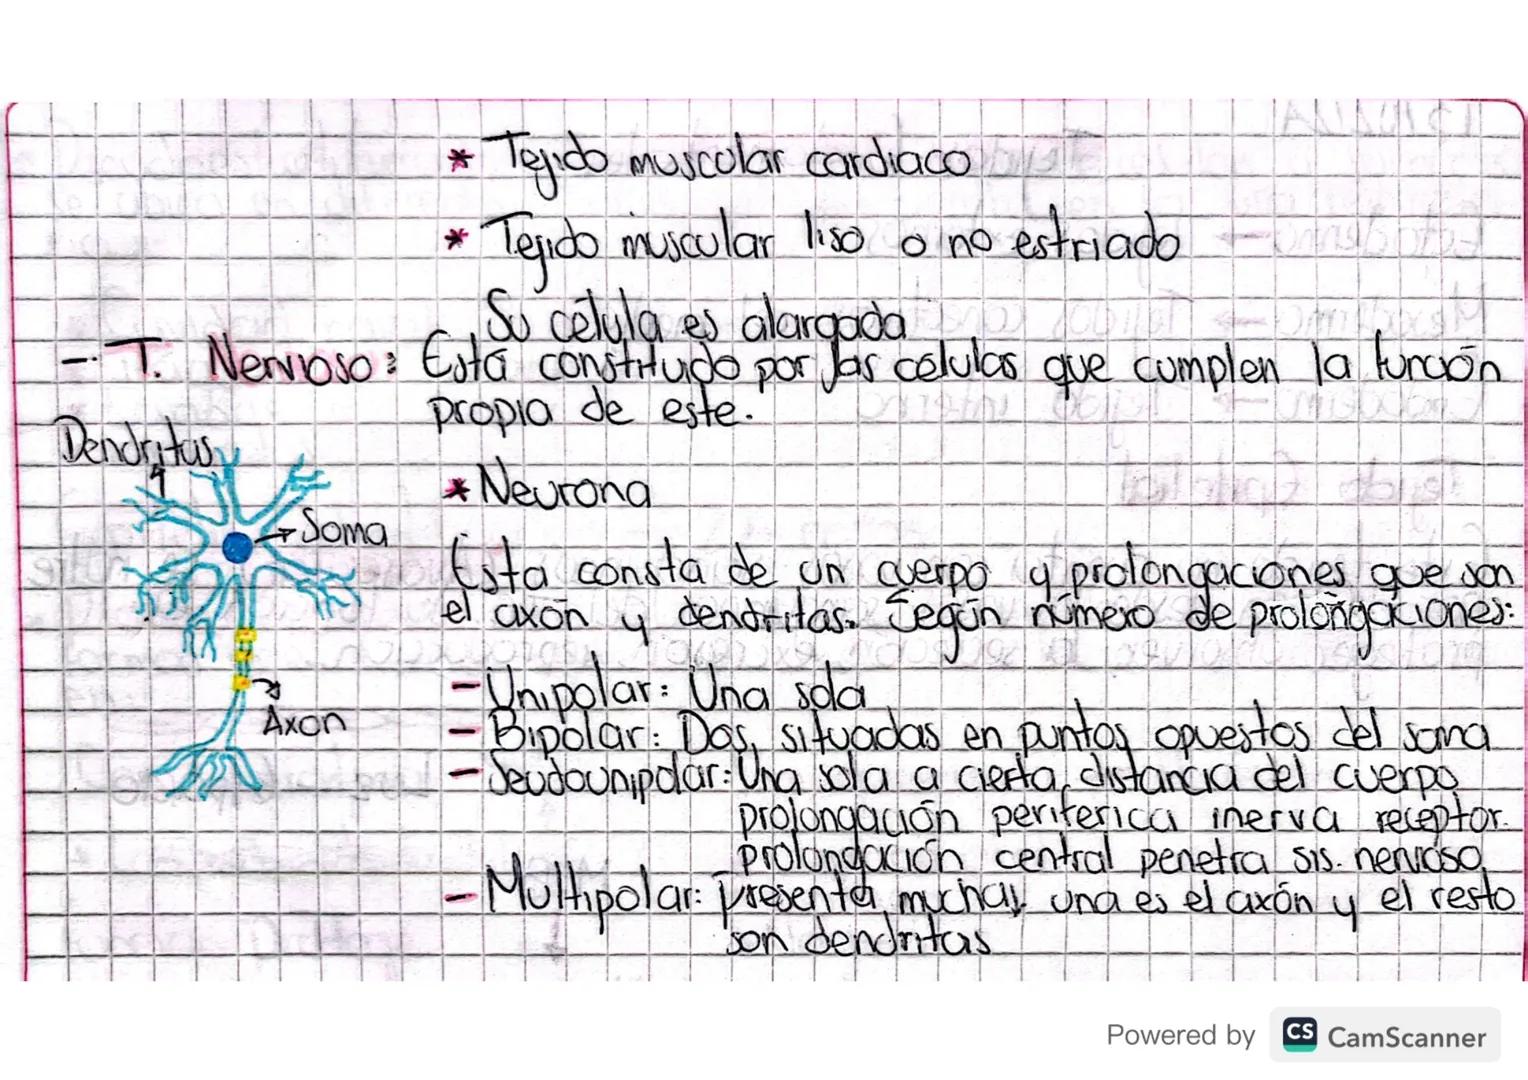 * Tejido muscular cardiaco
* Tejido muscular liso o no estriado
Su célula es alargada
- T. Nervioso: Está constituido por las células que cumplen la función
propia de este.
Dendritas
* Neurona
Soma
Esta consta de un cuerpo y prolongaciones que son
el axón y dendritas. Según número de prolongaciones:
- Unipolar: Una sola
Axon
- Bipolar: Dos, situadas en puntos opuestos del soma
- Seudounipolar: Una sola a cierta distancia del cuerpo
prolongación periferica inerva receptor.
prolongación central penetra sis. nervioso
- Multipolar: Presenta muchas una es el axón y el resto
son dendritas
Powered by CS CamScanner